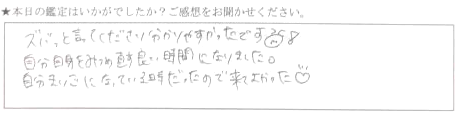 ★本日の鑑定はいかがでしたか？ご感想をお聞かせください。
ズバっと言ってくださり分かりやすかったです
自分自身をみつめ直す良い時間になりました。
自分まいごになっている時だったので来てよかった♡